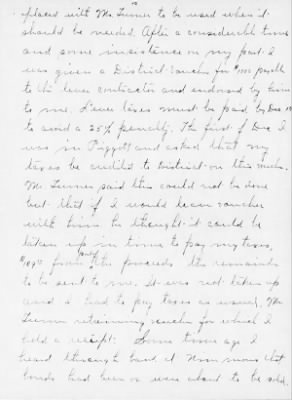 placed with Mr. Turner to be used when it
should be needed. After a considerable time
and some insistence on my part I
was given a District voucher for $1000 payable
to the levee contractor and endorsed by him
to me. Levee taxes must be paid by Dec 1st
to avoid a 25% penalty. The first of Dec I
was in Piggott and asked that my
taxes be credited to District on this voucher.
Mr. Turner said this could not be done
but that if I would leave voucher
with him he thought it could be
taken up in time to pay my taxes,
from the proceeds the remainder
to be sent to me. It was not taken up
and I had to pay taxes as usual, Mr.
Turner retaining voucher for which I
hold a receipt. Some time ago I
heard through hand at that
bonds had been or were about to be sold.